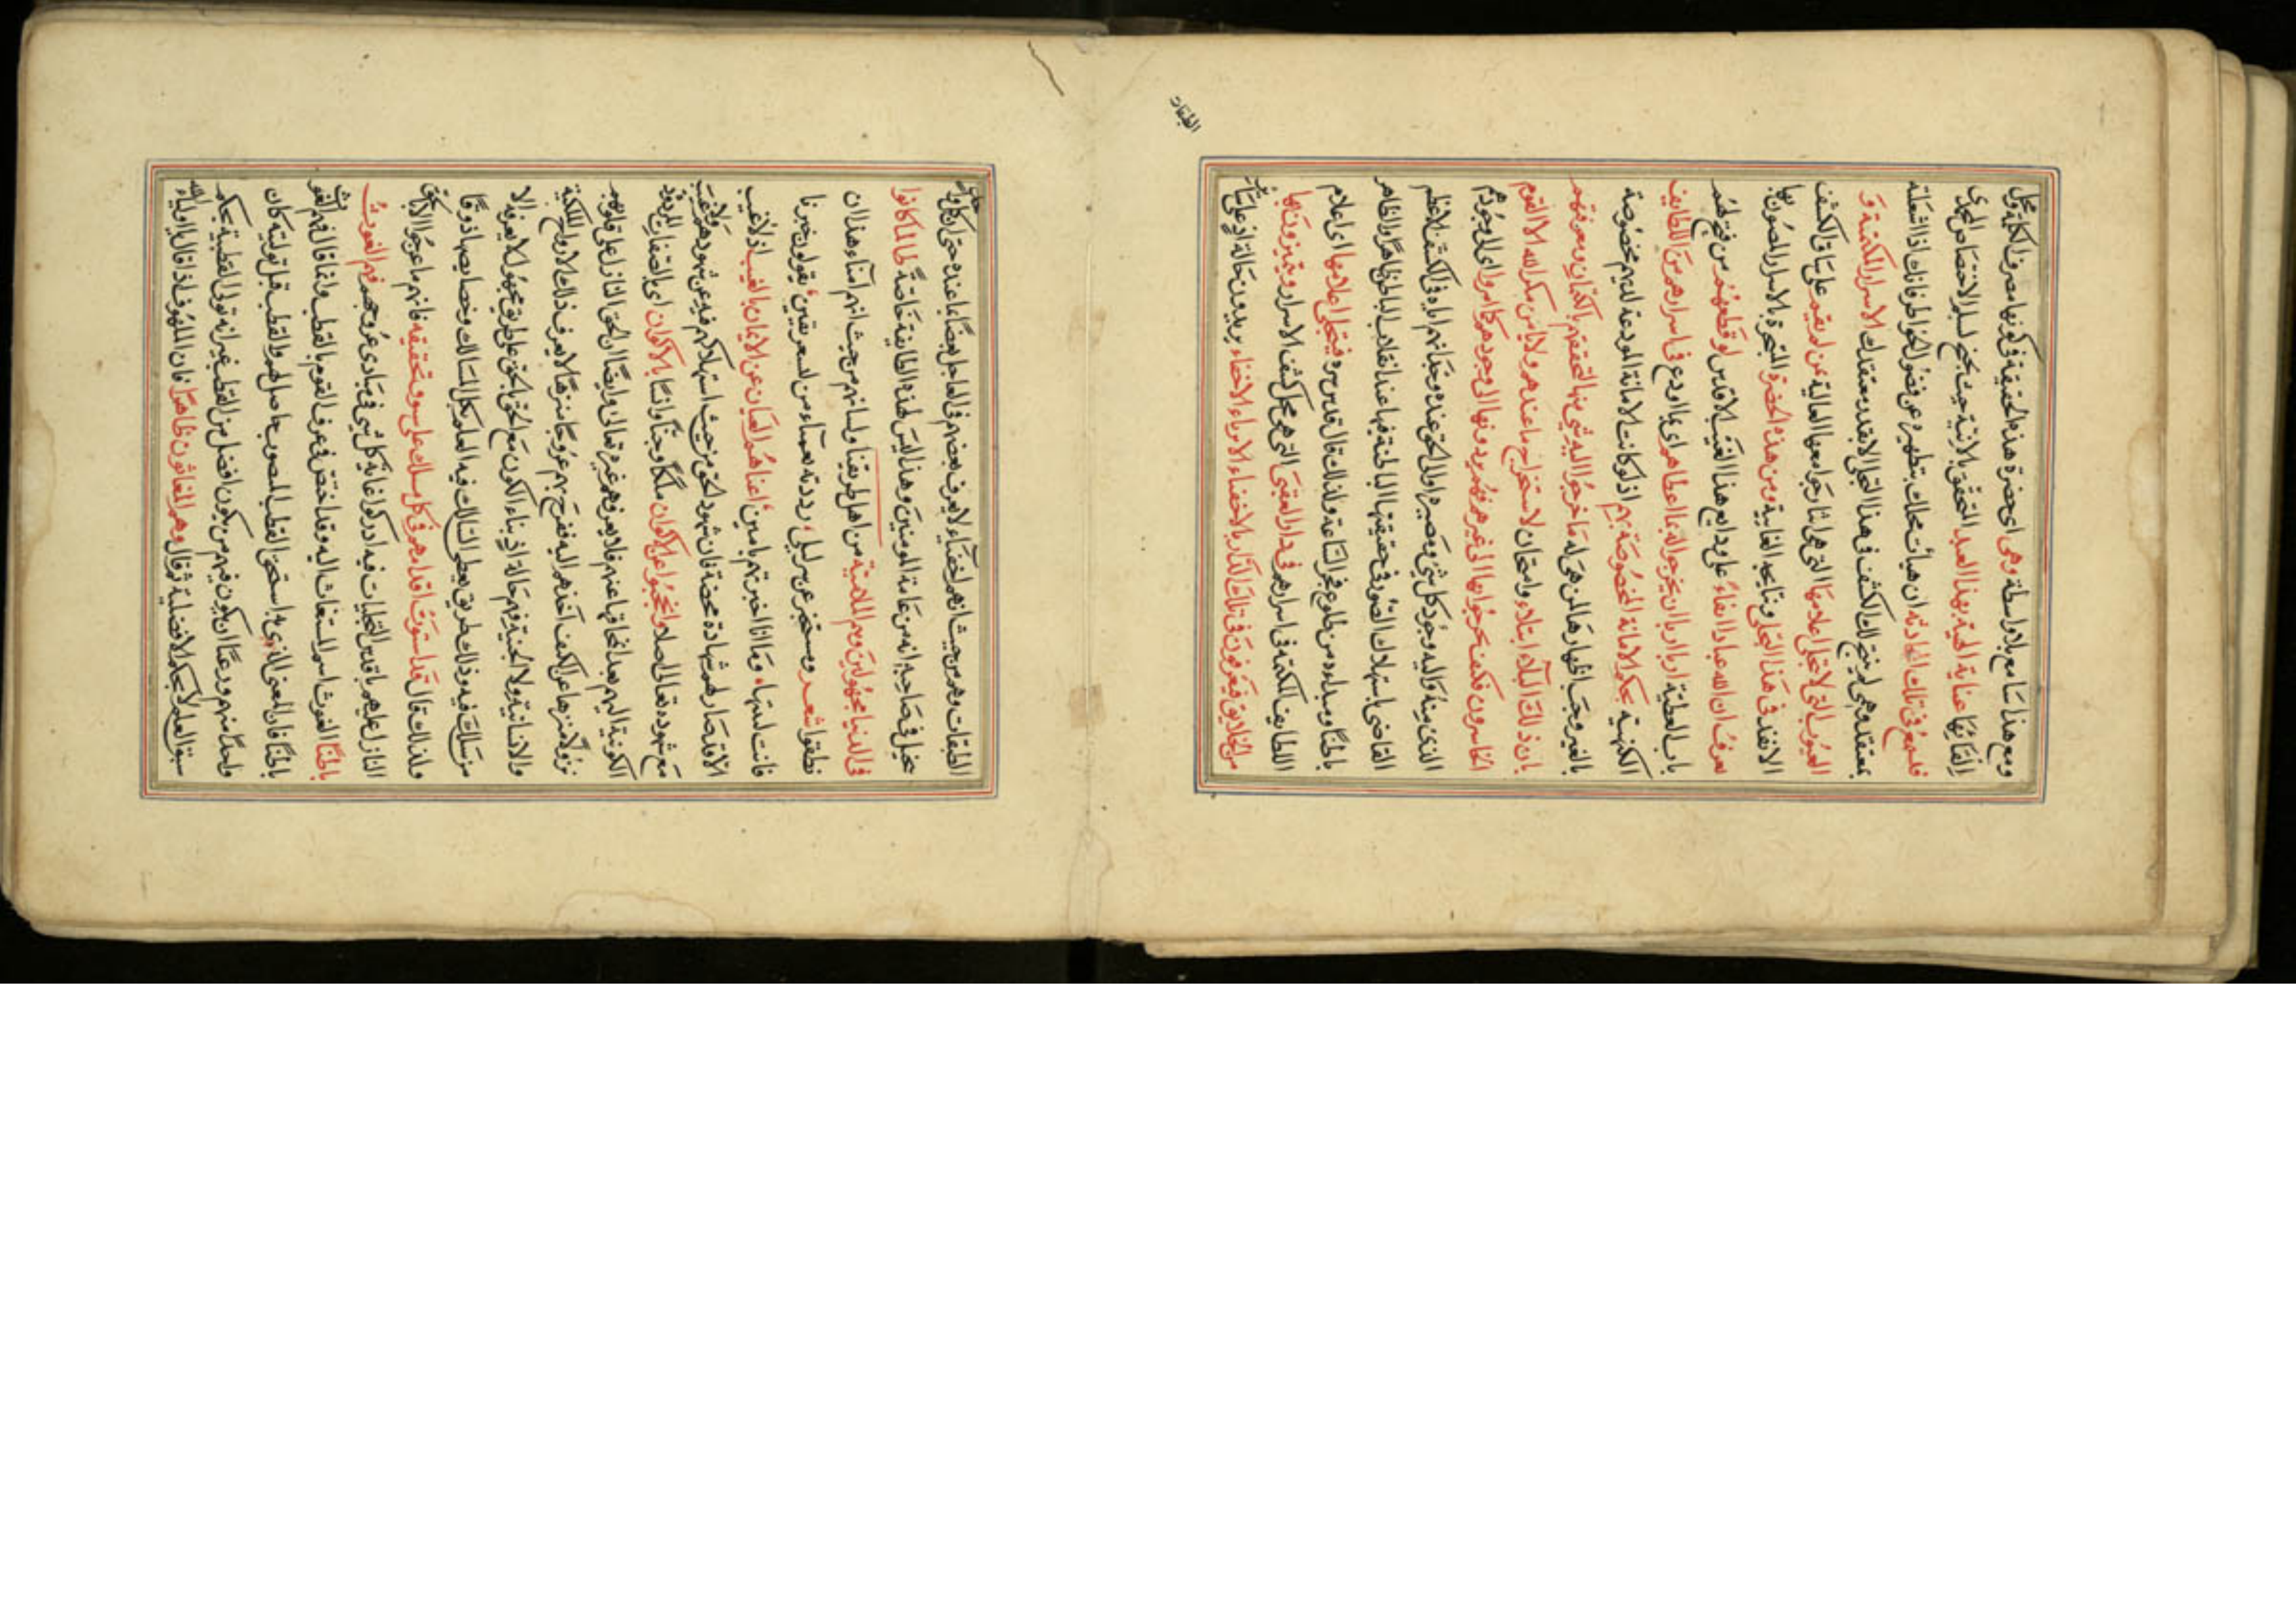 ومع هذا سامع بلا واسطة وهى اى حضرة هذه الحقيقة فى كونها
عناية الهية بهذا العبد المتحقق
فليسمع فى تلك الحادثة ان هيأت محلك بتطهيره عن فضول الخواطر فانك اذا اشعلته
بمعتقد وهمى لم ينتج لك الكشف فى هذا التجلى الا بقدر معتقدك الاسرار الكتمية و
الغيوب التى لا تتجلى اعلامها التى هى اثار جوامعها العالية عن لم يقم على ساق الكشف
الا نفذ فى هذا التجلى ونتايجه الغايبة ومن هذه الحضرة الفجرة بالاسرار المصون بها
تعرف ان لله عبادا امناء على ودايع هذا الغيب الاقدس لو قطعهم من فتح لهم
باب العطية اربا اربا ان يخرجوا له بما اعطاهم اى بما اودع فى اسرارهم من اللطايف
الكتمية بحكم الامانة المخصوصة بهم اذ لو كانت الامانة المودعة لديهم مخصوصة
بالغير وجب اظهارها لمن هى له ما خرجوا اليه بشى منها لتحققهم بالكتمان ومعرفتهم
بان ذلك البلاء ابتلاء وامتحان لاستخراج ما عندهم ولا يأمن مكر الله الا القوم
الخاسرون فكيف يخرجوا بها الى غيرهم فهم يردونها الى وجودهم كما امروا اى الى وجودهم
الذى منه واليه وجود كل شى ومصيره
القاضى باستهلاك الصور فى حقيقتها الباطنة فيها عند انقلاب الباطن ظاهرا والظاهر
باطنا ومبداه من طلوع فجر الساعة ولذلك قال قدس سره فيتجلى اعلامها اى اعلام
اللطايف الكتمية فى اسرارهم فى دار العقبى التى هى محل كشف الاسرار ويتميزون بها
من الخلايق فيعرفون فى تلك الدار بالاخفياء الابرياء الامناء
الطبقات
الطبقات وهم من حيث انهم اخفياء لا يعرف بعضهم فى العاجل بعضا بما عنده حتى ان كل واحد
يتخيل فى صاحبه انه من عامة المومنين وهذا ليس الا لهذه الطايفة خاصة طالما كانوا
فى الدنيا مجهولين وهم الملامتية من اهل طريقنا ولسانهم من حيث انهم امناء هذا ان
نطقوا شعر ومستخبر عن سر ليلى رددته بعمياء من ليلى بغير يقين يقولون خبرنا
فانت امينها وما انا ان خبرتهم بامين اغناهم العيان عن الايمان بالغيب اذ لا غيب
الا وقد صار لهم شهادة محضة فان شهود الحق من حيث استهلاكهم فيه عن شهودهم
مع شهوده تعالى اصلا وانحجبوا عن الاكوان ملكا وجنا وانسا بالاكوان اى
الكونية اليهم بعد انمحاقها عنهم فلا يعرفهم غيره تعالى وايضا ان الحق النازل على قلوبهم
نزولا منزها عن الكيف اخذهم اليه فعرج بهم عروجا منزها لا يعرف ذلك الارواح الملكية
والانسانية ولا الجنية فهم حالة اذ بناء الكون مع الحق بالحق على طريق مجهول لا يعرفه الا
من سلك فيه وذلك طريق يعطى السالك فيه العلم بكل المسالك وخصايصها ذوقا
ولذلك قال قد استوت اقدامهم فى كل مسلك على سوق تحقيقه فانهم ما عرجوا الا بالحق
النازل عليهم باقدس التجليات فيه ادركوا غاية كل شى فى مبادى عروجهم فهم الغوث
باطنا الغوث اسم المستغاث اليه وقد اختص فى عرف القوم بالقطب وانما قال فهم الغوث
باطنا فان المعنى الذى به استحق القطب المنصوب حاصل لهم والقطب قبل توليته كان
واحدا منهم وربما ان يكون فيهم من يكون افضل من القطب غير انه تولى القطبية بحكم
سبق العلم لا بحكم الافضلية ثم قال وهم المغاثون ظاهرا فان الملهوف اذا قال يا اولياء الله